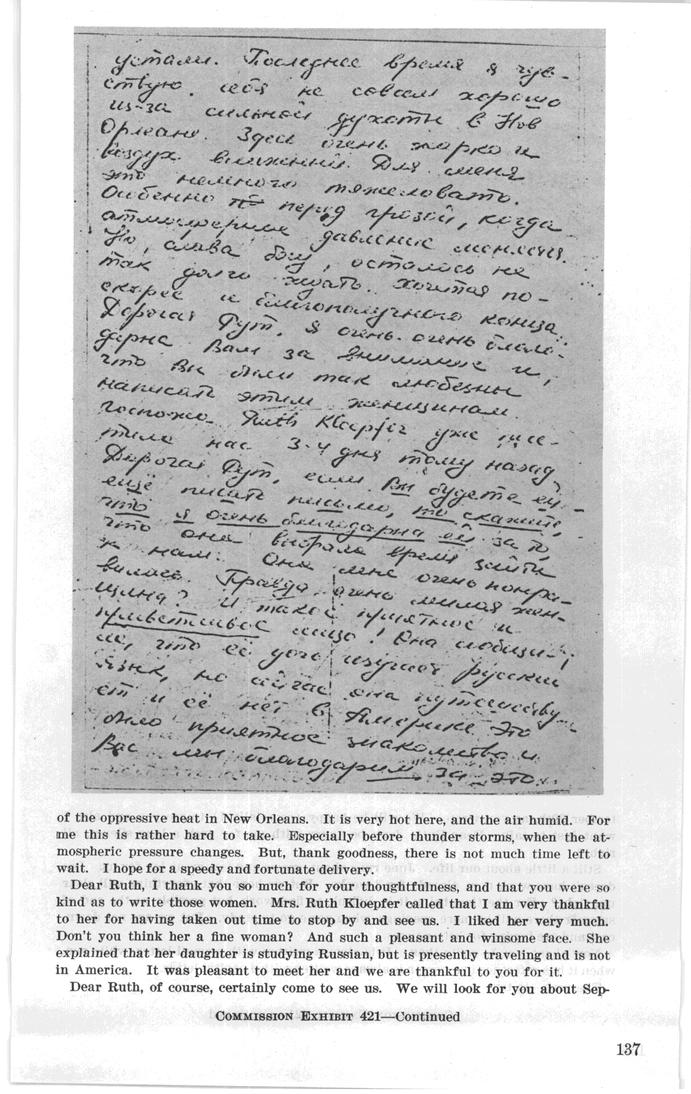 устали. Последнее время я чув-
ствую себя не совсем хорошо
из-за сильной духоты в Нов
Орлеане. Здесь очень жарко и
воздух влажный. Для меня
это немного тяжеловато.
Особенно перед грозой, когда
атмосферное давление меняется.
Но, слава богу, осталось не
так долго ждать. Хочется по-
скорее и благополучного конца.
Дорогая Рут, я очень очень благо-
дарна Вам за внимание и,
что Вы были так любезны
написать этим женщинам.
Госпожа Ruth Kloepfer уже
нас 3-4 дня тому назад
Дорогая Рут, если Вы будете ей
ещё писать письмо, то скажите,
что я очень благодарна ей за то,
что она выбрала время зайти
к нам. Она мне очень понра-
вилась. Правда очень милая жен-
щина? И такое приятное и
приветливое лицо! Она сообщи-
ла, что её дочь изучает русский
язык, но сейчас она путешеству-
ет и её нет в Америке. Это
было приятное знакомство и
Вас мы благодарим за это.
of the oppressive heat in New Orleans. It is very hot here, and the air humid. For
me this is rather hard to take. Especially before thunder storms, when the at-
mospheric pressure changes. But, thank goodness, there is not much time left to
wait. I hope for a speedy and fortunate delivery.
Dear Ruth, I thank you so much for your thoughtfulness, and that you were so
kind as to write those women. Mrs. Ruth Kloepfer called that I am very thankful
to her for having taken out time to stop by and see us. I liked her very much.
Don't you think her a fine woman? And such a pleasant and winsome face. She
explained that her daughter is studying Russian, but is presently traveling and is not
in America. It was pleasant to meet her and we are thankful to you for it.
Dear Ruth, of course, certainly come to see us. We will look for you about Sep-
COMMISSION EXHIBIT 421—Continued
137